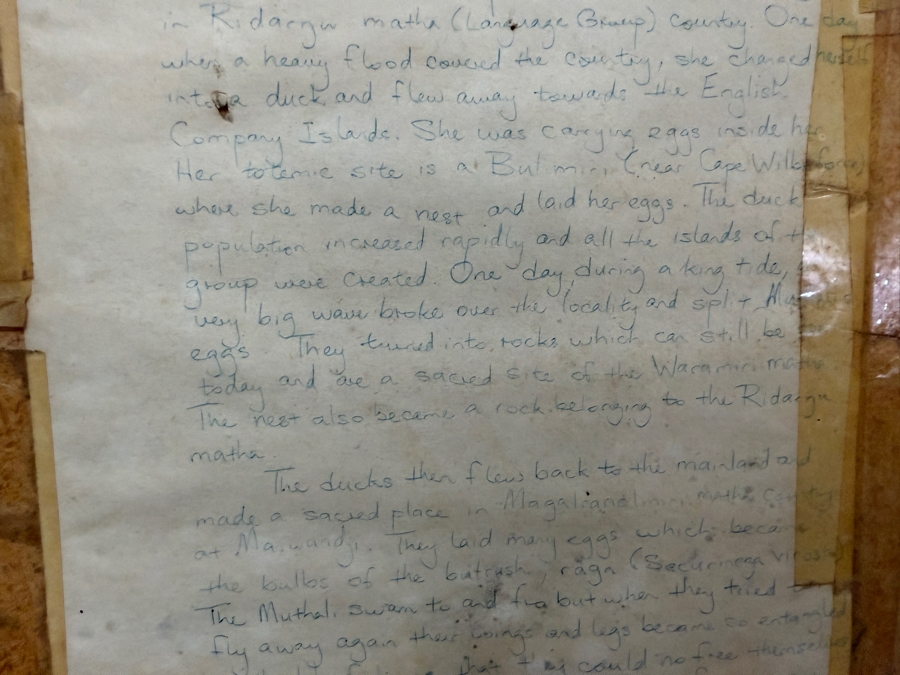 in Ridarngu matha (Language Group) country. One day
when a heavy flood covered the country, she changed herself
into a duck and flew away towards the English
Company Islands. She was carrying eggs inside her
Her totemic site is at Bulimini (near Cape Wilberforce)
where she made a nest and laid her eggs. The duck
population increased rapidly and all the islands of
group were created. One day, during a king tide, a
very big wave broke over the locality and split
eggs. They turned into rocks which can still be
today and are a sacred site of the Waramiri matha
The nest also became a rock belonging to the Ridarngu
matha.
The ducks then flew back to the mainland and
made a sacred place in matha country
at They laid many eggs which became
the bulbs of the bulrush, raga (Securinega
The Muthali swam to and fro but when they tried to
fly away again their wings and legs became so entangled
that they could no free themselves